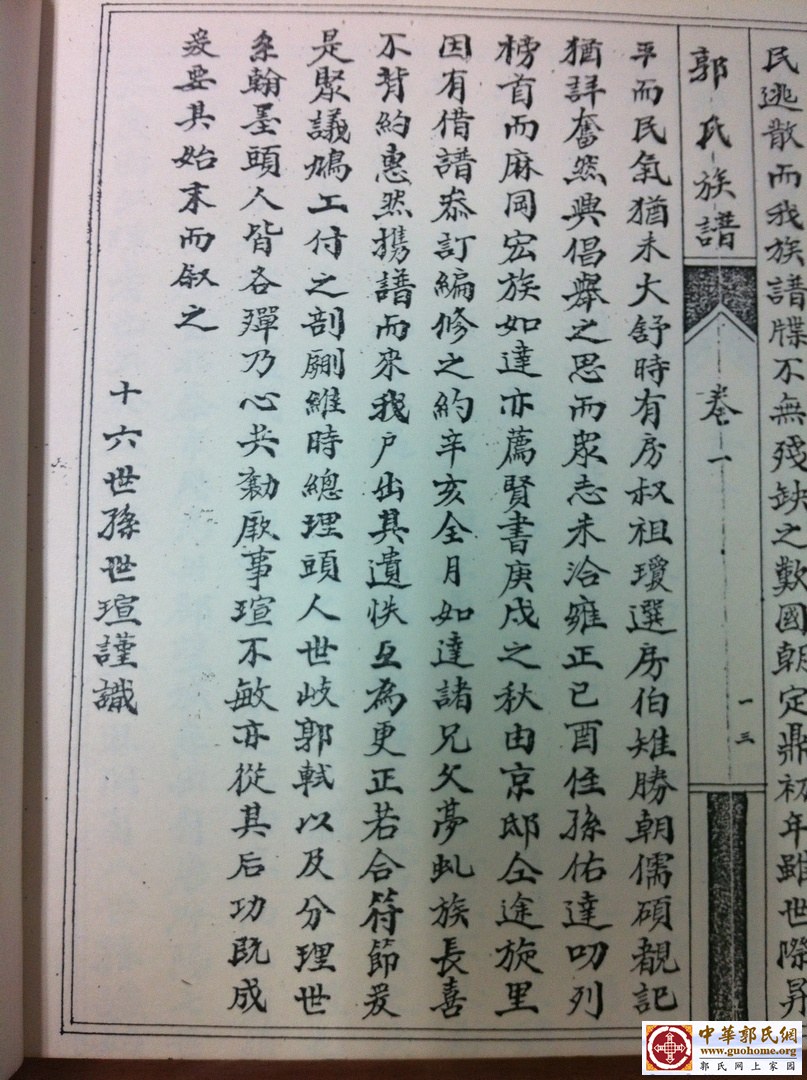 民逃散而我族譜牒不無殘缺之歎國朝定鼎初年雖世際昇
郭氏族譜 卷一 一三
平而民氣猶未大舒時有房叔祖瓊選房伯雉勝朝儒碩覩記
猶詳奮然興倡舉之思而眾志未洽雍正己酉侄孫佑達叨列
榜首而麻岡宏族如達亦薦賢書庚戌之秋由京邸仝途旋里
因有借譜叅訂編修之約辛亥仝月如達諸兄父夢虬族長喜
不背約惠然携譜而來我户出其遺帙互為更正若合符節爰
是聚議鳩工付之剖劂維時總理頭人世岐郭軾以及分理世
糸翰墨頭人皆各殫乃心共勷厥事瑄不敏亦從其后功既成
爰要其始末而叙之
十六世孫世瑄謹識
中華郭氏網
www.guohome.org
郭氏网上家园